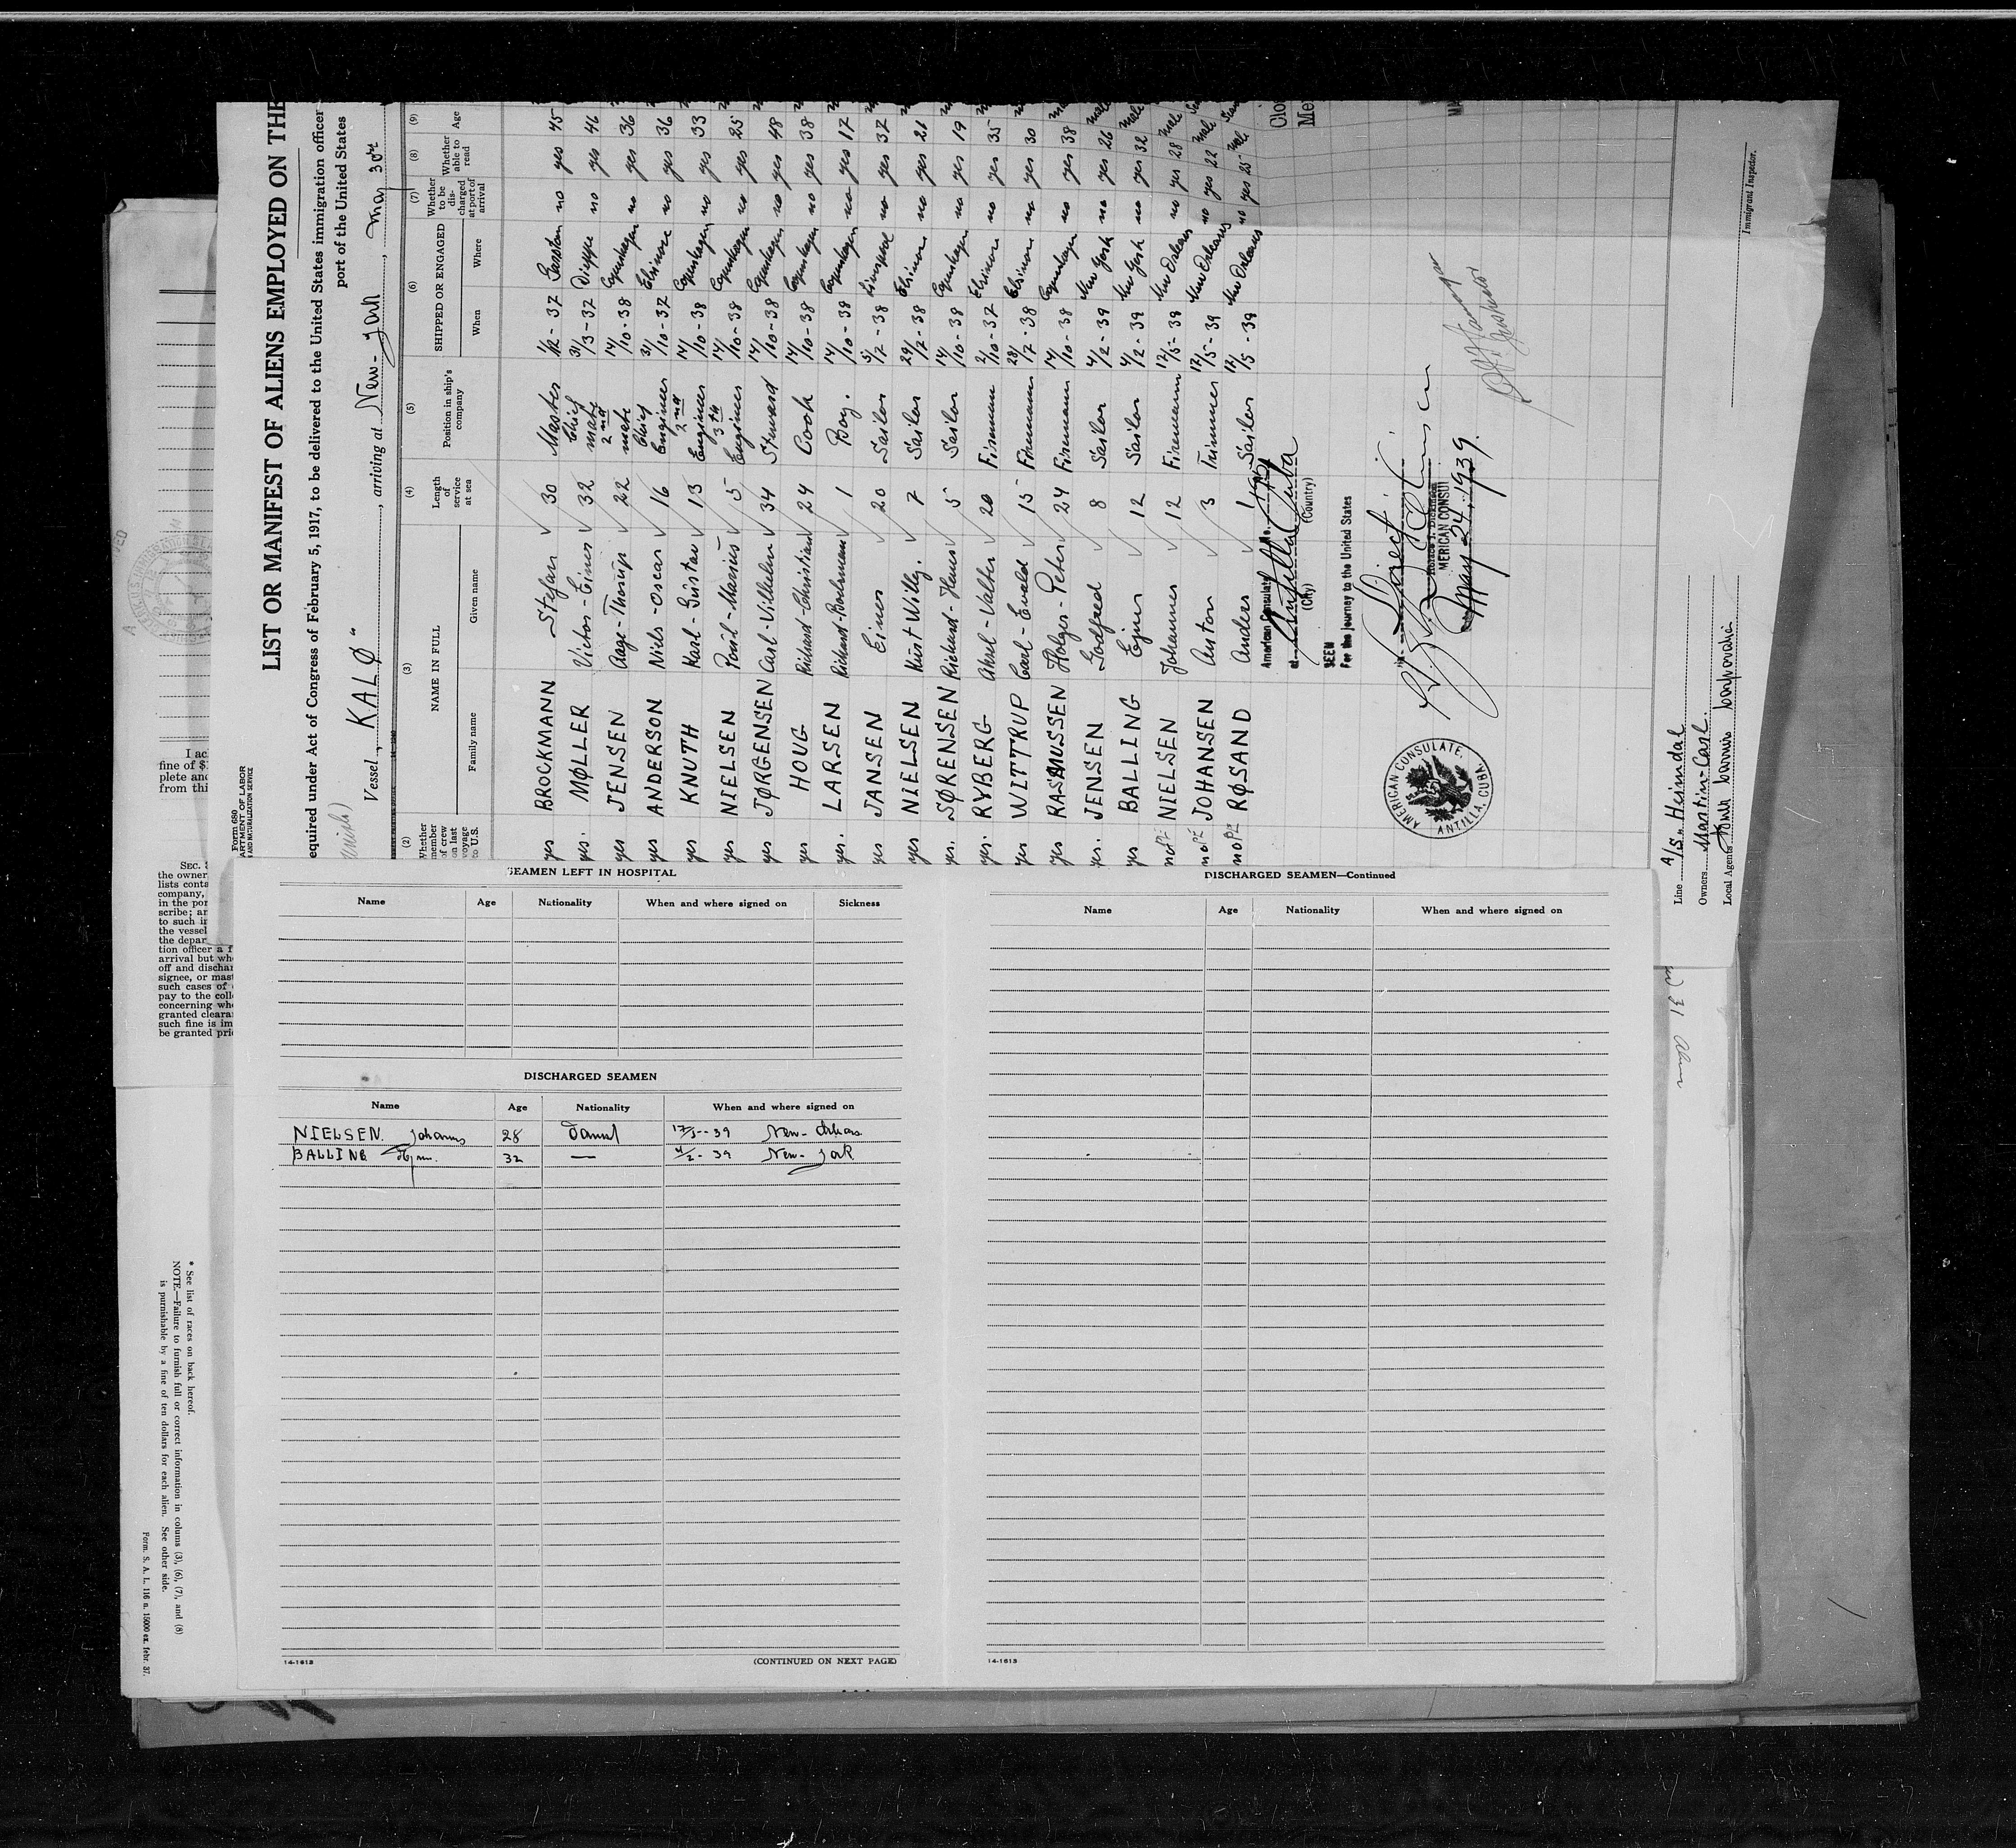 LIST OR MANIFEST OF ALIENS EMPLOYED ON THE
equired under Act of Congress of February 5, 1917, to be delivered to the United States immigration officer
port of the United States
Vessel, KALØ", arriving at New-York, May 30th
Form 680
ARTMENT OF LABOR
AND NATURALIZATION SERVICE
(2) (3) (4) (5) (6) (7) (8) (9)
Whether member of crew on last voyage to U.S. NAME IN FULL Family name Given name Length of service at sea Position in ship's company SHIPPED OR ENGAGED When Where Whether to be dis-charged at port of arrival Whether able to read Age
yes BROCKMANN Stefan 30 Master 37 no yes 45
yes. MØLLER Victor-Einer 32 Chief mate 31/3-37 Dieppe no yes 46
yes JENSEN Aage-Thorup 22 2nd mate 14/10-38 Copenhagen no yes 36
yes ANDERSON Niels-Oscar 16 Chief Engineer 31/10-37 Elsinore no yes 36
yes KNUTH Karl-Gustav 13 2nd Engineer 14/10-38 Copenhagen no yes 33
yes NIELSEN Poul-Marius 5 3th Engineer 14/10-38 Copenhagen no yes 25
yes JØRGENSEN Carl-Vilhelm 34 Steward 14/10-38 Copenhagen no yes 48
yes HOUG Richard-Christian 24 Cook 14/10-38 Copenhagen no yes 38
yes. LARSEN Richard 1 Boy. 14/10-38 Copenhagen no yes 17
yes JANSEN Einer 20 Sailor 5/7-38 Liverpool no yes 37
yes NIELSEN Kurt Willy. 7 Sailor 29/7-38 Elsinore no yes 21
yes. SØRENSEN Richard-Hans 5 Sailor 14/10-38 Copenhagen no yes 19
yes. RYBERG Aksel-Valter 20 Firemann 2/10-37 Elsinore no yes 35
yes WITTRUP Carl-Evald 15 Firemann 28/7-38 Elsinore no yes 30
yes RASMUSSEN Holger-Peter 24 Firemann 14/10-38 Copenhagen no yes 38
yes. JENSEN Godfred 8 Sailor 4/2-39 New York no yes 26 male
yes BALLING Ejner 12 Sailor 4/2-39 New York no yes 32 male
NIELSEN Johannes 12 Firemann 12/5-39 New Orleans no yes 28 male
JOHANSEN Anton 3 Trimmer 12/5-39 New Orleans no yes 22 male
RØSAND Anders 1 Sailor 12/5-39 New Orleans no yes 25 male
American Consulate
at Antilla Cuba
(City) (Country)
SEEN
For the journey to the United States
Direct
MERICAN CONSUL
May 24, 1939.
AMERICAN CONSULATE. ANTILLA, CUBA.
Immigrant Inspector.
Line A/S. Heimdal
Owners Martin-Carl.
Local Agents
I ac
fine of $1
plete and
from thi
SEC.
the owner
lists conta
company,
in the por
scribe; an
to such in
the vessel
the depar
tion officer a f
arrival but wh
off and dischar
signee, or mast
such cases of
pay to the coll
concerning whe
granted cleara
such fine is im
be granted pri
SEAMEN LEFT IN HOSPITAL
Name Age Nationality When and where signed on Sickness
DISCHARGED SEAMEN
Name Age Nationality When and where signed on
NIELSEN. Johannes 28 17/5--39 New-Orleans
BALLING Ejner. 32 — 4/2-39 New-York
14-1613 (CONTINUED ON NEXT PAGE)
DISCHARGED SEAMEN—Continued
Name Age Nationality When and where signed on
14-1613
* See list of races on back hereof.
NOTE.—Failure to furnish full or correct information in colums (3), (6), (7), and (8)
is purnishable by a fine of ten dollars for each alien. See other side.
Form. S. A. L. 116 n. 15000 ex. febr. 37.